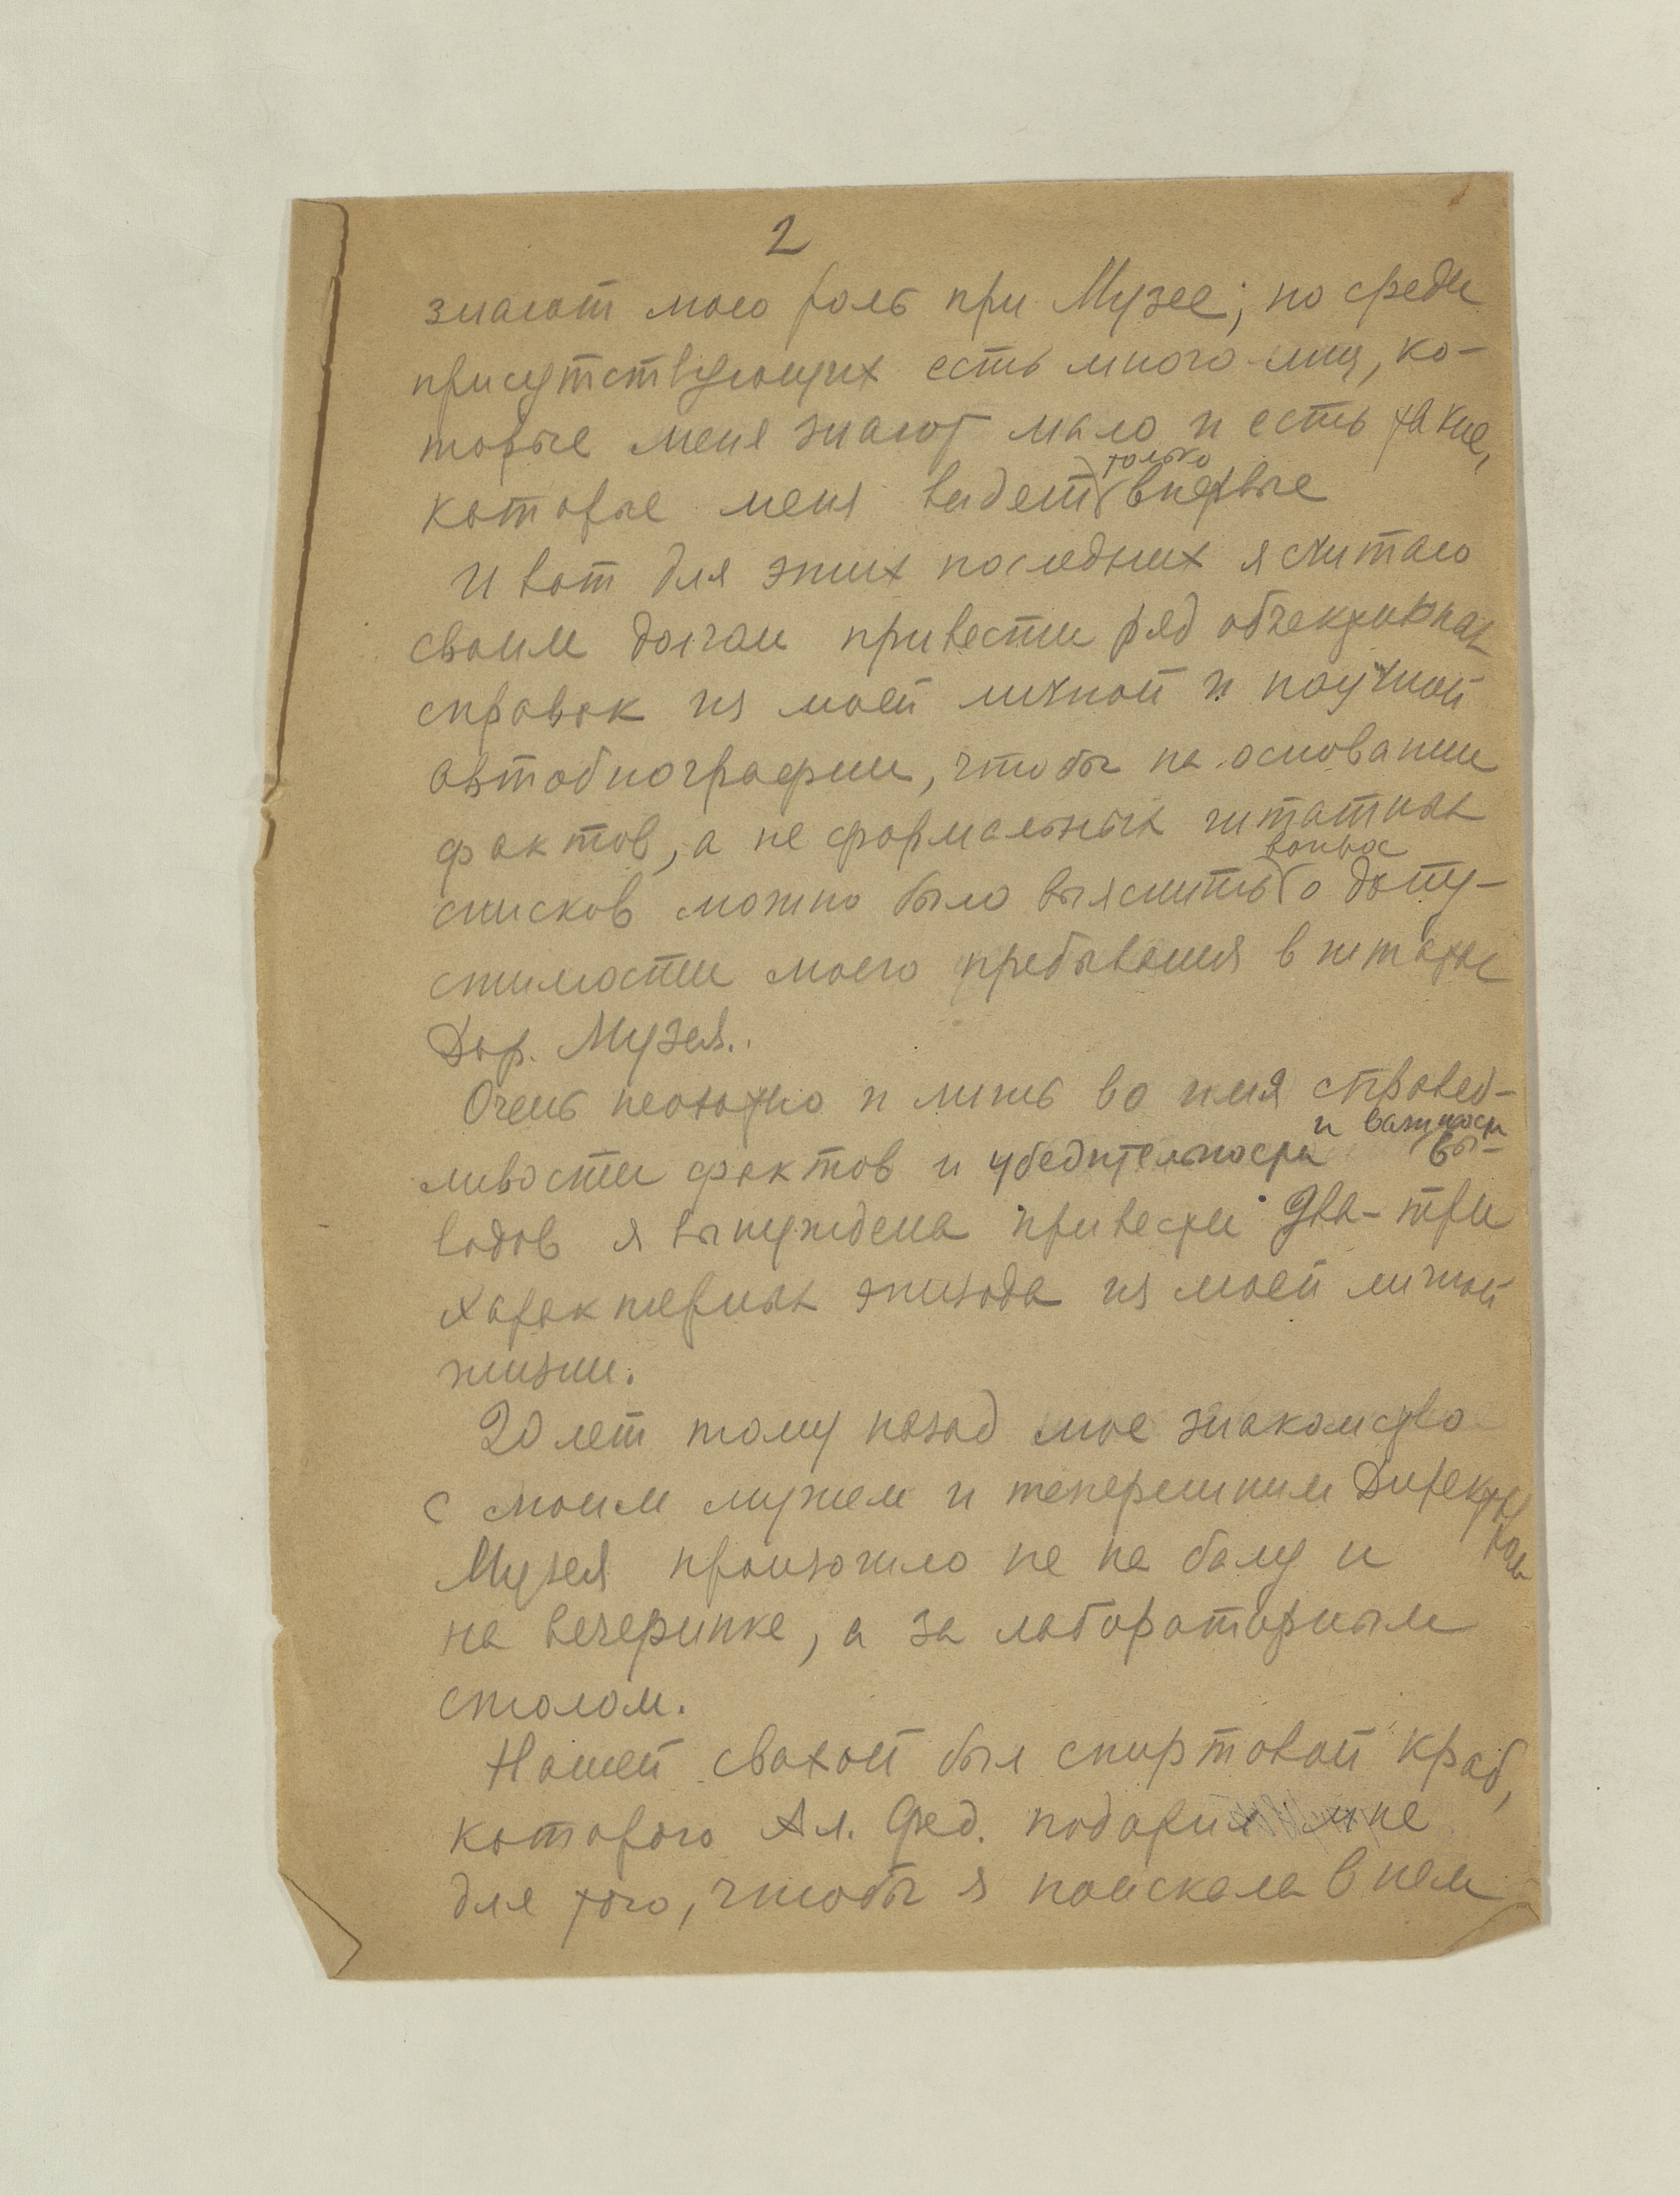 2
знают мою роль при Музее; но среди
присутствующих есть много лиц, ко-
торые меня знают мало и есть такие,
только
которые меня видят впервые
И вот для этих последних я считаю
своим долгом привести ряд объективных
справок из моей личной и научной
автобиографии, чтобы на основании
фактов, а не формальных штатных
вопрос
списков можно было выяснить о допу-
стимости моего пребывания в штатах
Дар. Музея.
Очень неохотно и лишь во имя справед-
и важности
ливости фактов и убедительности вы-
водов я вынуждена привести два-три
характерных эпизода из моей личной
жизни.
20 лет тому назад мое знакомство
с моим мужем и теперешним Директо
ром
Музея произошло не на балу и
на вечеринке, а за лабораторным
столом.
Нашей свахой был спиртовой краб,
которого Ал. Фед. подарил мне
для того, чтобы я поискала в нем